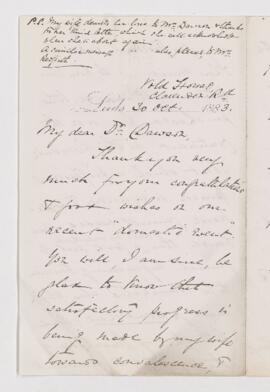 P.S. My wife desires her love to Mrs. Dawson & thanks
for her kind letter, which she will acknowledge
when she is about again.
A similar message also please to Mrs.
Clarendon Rd
Leeds 30 Oct 1883.
My dear Dr. Dawson,
Thank you very
much for your congratulations
& good wishes on our
recent "domestic event".
You will, I am sure, be
glad to know that
satisfactory progress is
being made by my wife
towards convalescence, &